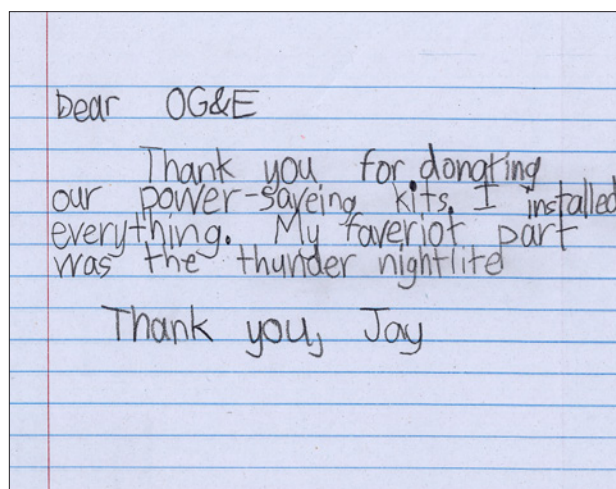 Dear OG&E
Thank you for donating
our power-saveing kits. I installed
everything. My faveriot part
was the thunder nightlite
Thank you, Jay